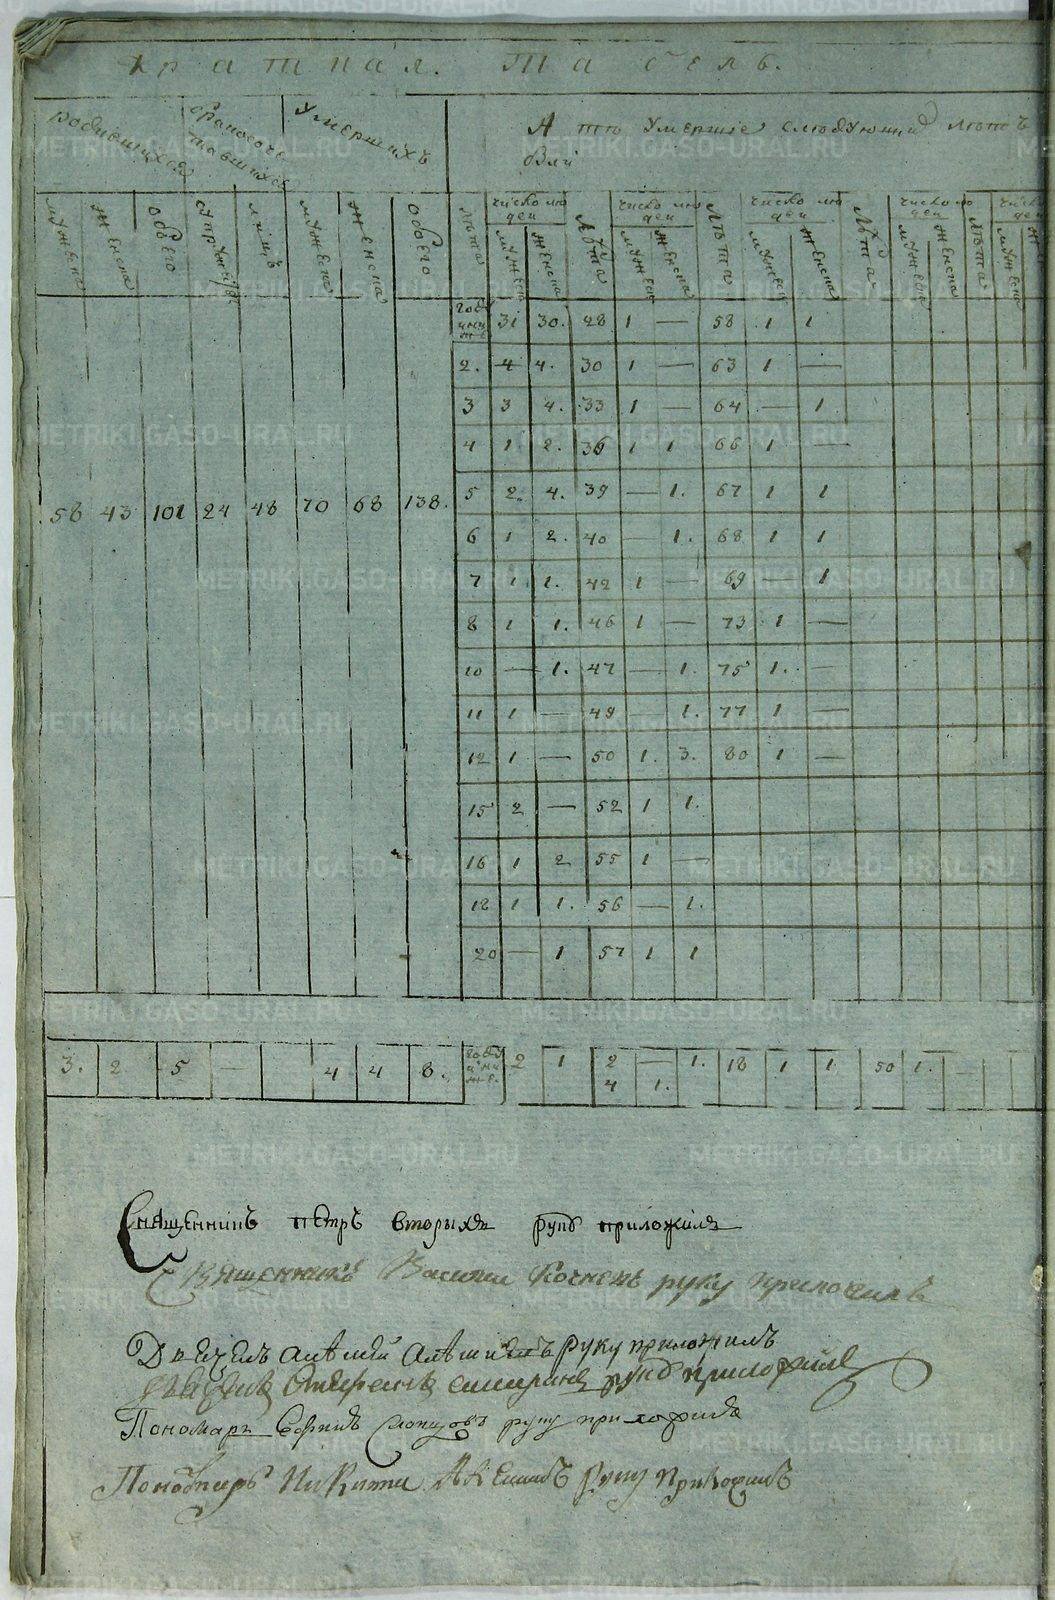 Краткая. Табель.
Родившихся
Бракосочетавшихся
Умершихъ
А тѣ Умершие слѣдующихъ лѣтъ
были
мужеска женска обоего супружествъ лицъ мужеска женска обоего
лѣта число людей мужеска женска лѣта число людей мужеска женска лѣта число людей мужеска женска лѣта число людей мужеска женска лѣта число людей мужеска
58 43 101 24 48 70 68 138.
году и ниже 31 30. 28 1 — 58 1 1
2. 4 4. 30 1 — 63 1 —
3 3 4. 33 1 — 64 — 1
4 1 2. 36 1 1 66 1 —
5 2. 4. 39 — 1. 67 1 1
6 1 2. 40 — 1. 68 1 1
7 1 1. 42 1 — 69 — 1
8 1 1. 46 1 — 73 1 —
10 — 1. 47 — 1. 75 1. —
11 1 — 49 — 1. 77 1 —
12 1 — 50 1. 3. 80 1 —
15 2 — 52 1 1.
16 1 2 55 1 —
18 1 1. 56 — 1.
20 — 1 57 1 1
3. 2 5 — 4 4 8. году и ниже. 2 1 2 — 1. 18 1 1 50 1. —
4 1.
Священникъ Петръ Вторыхъ руку приложилъ
Священникъ Василий Кочневъ руку приложилъ
Дьячекъ руку приложилъ
руку приложилъ
Пономарь руку приложилъ
Пономарь Никита руку приложилъ
METRIKI.GASO-URAL.RU